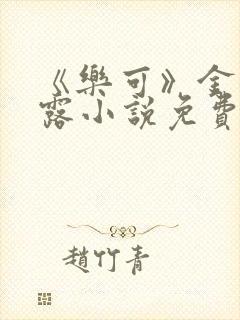 《樂可》金
露小說免費
趙竹青